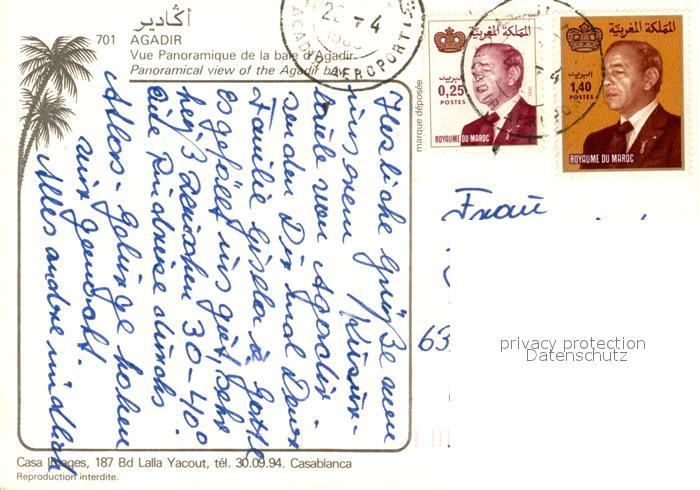 أڭادير
701 AGADIR
Vue Panoramique de la baie d'Agadir
Panoramical view of the Agadir bay
marque déposée
المملكة المغربية
البريد
0,25
POSTES
ROYAUME DU MAROC
المملكة المغربية
البريد
1,40
POSTES
ROYAUME DU MAROC
AEROPORT
Herzliche Grüße von
unserem
von Agadir
senden Dir und Deiner
Familie Gisela u.
es gefällt uns gut, sehr
heiß zwischen 30-40°
Rundreise durchs
Atlas-Gebirge haben
wir gemacht
Alles andere mündlich
Frau
63
privacy protection
Datenschutz
Casa Images, 187 Bd Lalla Yacout, tél. 30.09.94. Casablanca
Reproduction interdite.